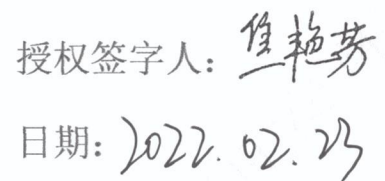 授权签字人：焦艳芳
日期：2022.02.23